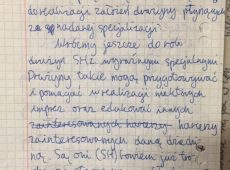 do realizacji założeń drużyny płynących
za nadanej specjalizacji.
Wróćmy jeszcze do roli
drużyn SHz wyraźnym specjalnym
Drużyny takie mogą przygotowywać
i pomagać w realizacji niektórych
imprez oraz edukować innych
zainteresowanych harcerzy harcerzy
zainteresowanych daną dziedzi
ną. Są oni (SH) bowiem już